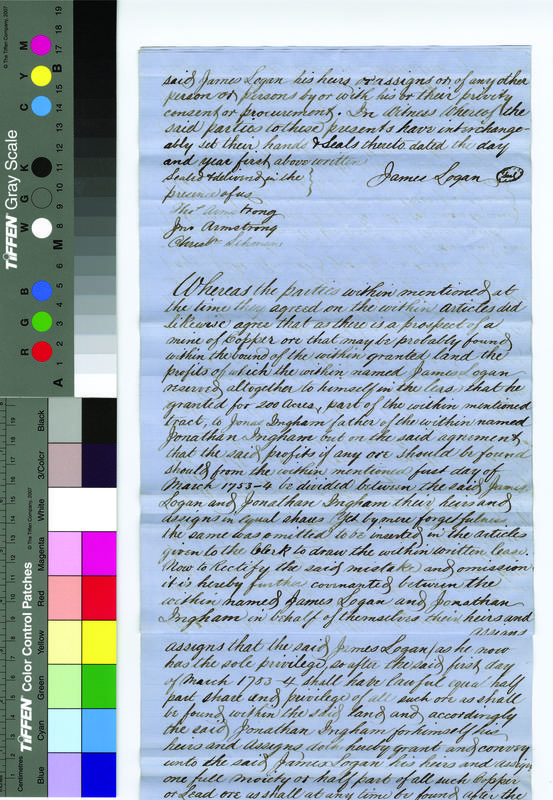 said James Logan his heirs or assigns or of any other
person or persons by or with his or their privity
consent or procurement. In Witness Whereof the
said parties to these presents have interchange-
ably set their hands & Seals thereto dated the day
and year first above written
Sealed & delivered in the
presence of us
James Logan
Seal
Thos. Armstrong
Jno Armstrong
Whereas the parties within mentioned at
the time they agreed on the within articles did
likewise agree that as there is a prospect of a
mine of Copper ore that may be probably found
within the bound of the within granted land the
profits of which the within named James Logan
reserved altogether to himself in the lease that he
granted for 200 Acres, part of the within mentioned
tract, to Jonas Ingham father of the within named
Jonathan Ingham but on the said agreement
that the said profits if any ore should be found
should from the within mentioned first day of
March 1753-4 be divided between the said James
Logan and Jonathan Ingham their heirs and
assigns in equal shares Yet by mere forgetfulness
the same was omitted to be inserted in the articles
given to the Clerk to draw the within written lease.
Now to Rectify the said mistake and omission
it is hereby further covenanted between the
within named James Logan and Jonathan
Ingham in behalf of themselves their heirs and
assigns
assigns that the said James Logan as he now
has the sole privilege, so after the said first day
of March 1753-4 shall have lawful equal half
part share and privilege of all such ore as shall
be found within the said land and accordingly
the said Jonathan Ingham for himself his
heirs and assigns doth hereby grant and convey
unto the said James Logan his heirs and assigns
one full moiety or half part of all such Copper
or Lead ore as shall at any time be found after the
TIFFEN Gray Scale
© The Tiffen Company, 2007
R G B W G K C Y M
A 1 2 3 4 5 6 M 8 9 10 11 12 13 14 15 B 17 18 19
TIFFEN Color Control Patches
© The Tiffen Company, 2007
Centimetres
Blue
Cyan
Green
Yellow
Red
Magenta
White
3/Color
Black